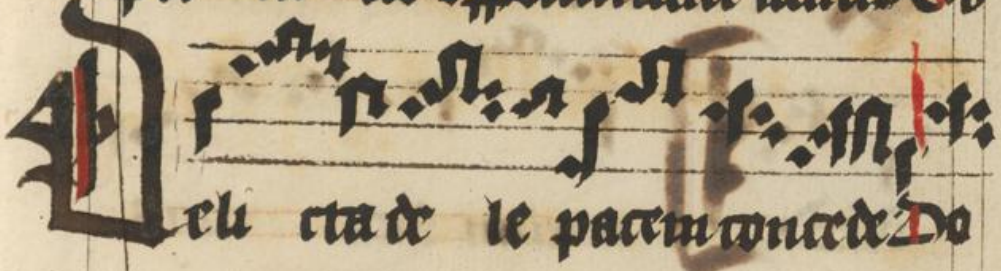 Deli cta de le pacem concede Do